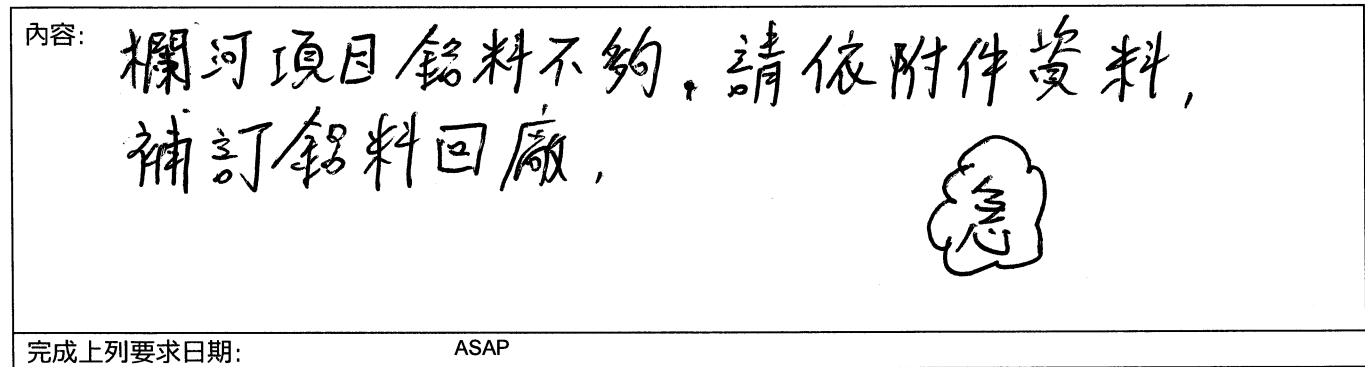 內容:
欄河項目鋁料不夠.請依附件資料,
補訂鋁料回廠,
急
完成上列要求日期: ASAP